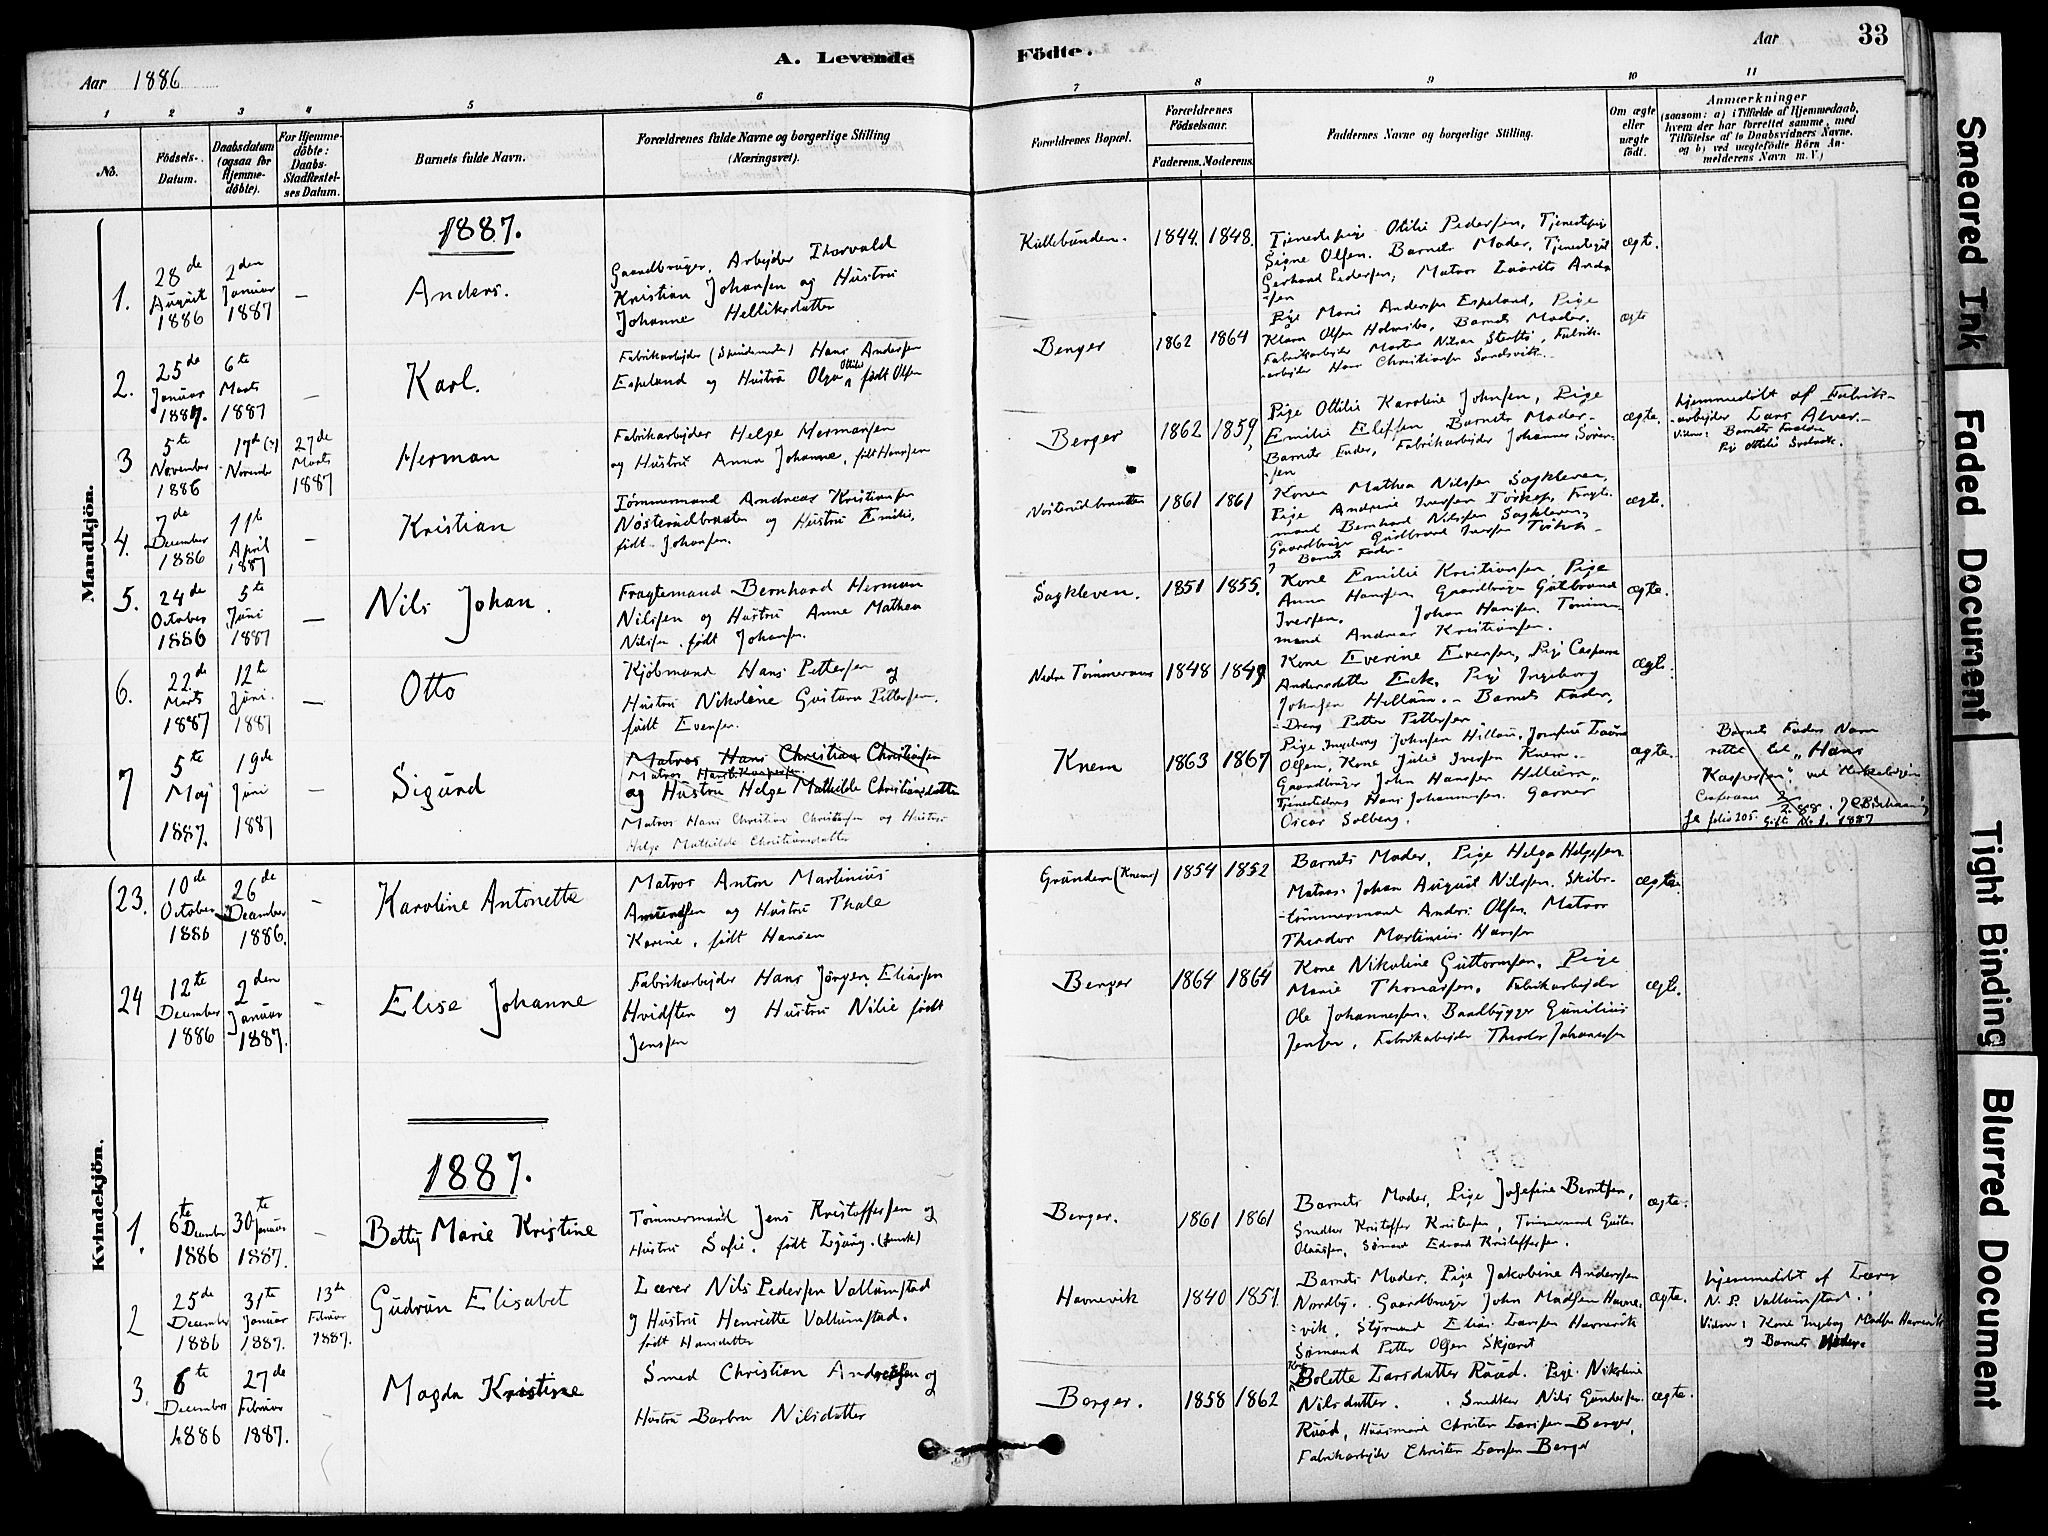 Aar 1886
A. Levende Födte.
Aar 33
1 2 3 4 5 6 7 8 9 10 11
No.
Födsels-
Datum.
Daabsdatum
(ogsaa for
Hjemme-
döbte).
For Hjemme-
döbte:
Daabs-
Stadfæstel-
ses Datum.
Barnets fulde Navn.
Forældrenes fulde Navne og borgerlige Stilling
(Næringsvei).
Forældrenes Bopæl.
Forældrenes
Födselsaar.
Faderens. Moderens.
Faddernes Navne og borgerlige Stilling.
Om ægte
eller
uægte
født.
Anmærkninger
(saasom: a) i Tilfælde af Hjemmedaab,
hvem der har forrettet samme, med
Tilföielse af to Daabsvidners Navne,
og b) ved uægtefödte Börn An-
melderens Navn m. V.)
Mandkjön.
1887.
1.
28de
August
1886
2den
Januar
1887
–
Anders.
Gaardbruger, Arbejder Thorvald
Kristian Johansen og Hustru
Johanne Helliksdatter
Killebunden.
1844. 1848.
Tjenestepige Otilie Pedersen, Tjenestepige
Signe Olsen. Barnets Moder, Tjenestegut
Gerhard Pedersen, Matros Laurits Andr
=sen
ægte.
2.
25de
Januar
1887.
6te
Marts
1887
–
Karl.
Fabrikarbejder (Spindemester) Hans Andersen
Espeland og Hustru Olga Ottilie født Olsen
Berger
1862 1864
Pige Marie Andersen Espeland, Pige
Klara Olsen Holmsbo, Barnets Moder,
Fabrikarbejder Morten Nilsen, Fabrik-
arbejder Hans Christiansen Sandsvik.
ægte
3
5te
November
1886
17de (?)
November
27de
Marts
1887
Herman
Fabrikarbejder Helge Hermansen
og Hustru Anna Johanne, født Hansen
Berger
1862 1859
Pige Ottilie Karoline Johnsen, Pige
Emilie Elefsen Barnets Moder.
Barnets Fader, Fabrikarbejder Johannes Sören-
sen
ægte.
Hjemmedöbt af Fabrik-
-arbejder Lars Alver.
Vidner: Barnets Forældre
Pige Ottilie
4.
7de
December
1886
11te
April
1887
–
Kristian
Tömmermand Andreas Kristiansen
Nösterudbraaten og Hustru Emilie,
født Johansen.
Nösterudbraaten
1861 1861
Konen Mathea Nilssen Sagkleven,
Pige Andrine Iversen, Fragte-
mand Bernhard Nilssen Sagkleven,
Gaardbruger Gudbrand Iversen
Barnets Fader
ægte.
5.
24de
October
1886
5te
Juni
1887
–
Nils Johan.
Fragtemand Bernhard Herman
Nilssen og Hustru Anne Mathea
Nilssen født Johansen.
Sagkleven.
1851 1855.
Kone Emilie Kristiansen, Pige
Anna Hansen, Gaardbruger Gulbrand
Iversen. Johan Hansen. Tömmer-
mand Andreas Kristiansen.
ægte.
6.
22de
Marts
1887
12te
Juni.
1887
–
Otto
Kjöbmand Hans Pettersen og
Hustru Nikoline Gustava Pettersen.
født Evensen.
Nedre Tömmeraas
1848 1849
Kone Everine Evensen, Pige Caspara
Andersdatter Eek, Pige Ingeborg
Johnsen Hellum. Barnets Fader,
-Dreng Petter Pettersen
ægte.
7
5te
Maj
1887.
19de
Juni
1887
–
Sigurd
Matros Hans Christian Christiansen
Matros Hans Kaspersen
og Hustru Helge Mathilde Christiansdatter
Matros Hans Christian Christensen og Hustru
Helge Mathilde Christiansdatter
Knem
1863 1867
Pige Ingeborg Johnsen Hillum, Jomfru Laura
Olsen, Kone Julie Iversen Knem.
Gaardbruger John Hansen Hellum.
Tjenestedreng Hans Johannesen. Garver
Oscar Solberg.
ægte.
Barnets Faders Navn
rettet til „Hans
Kaspersen" ved Kirkebogen
2/2 88.
Se folio 205. Gift. No. 1. 1887
Kvindekjön.
23.
10de
October
1886
26de
December
1886.
–
Karoline Antonette
Matros Anton Martinius
Amundsen og Hustru Thale
Karine, født Hansen
Grunden (Knem)
1854 1852
Barnets Moder, Pige Helga Helgesen
Matros Johan August Nilssen. Skibs-
tömmermand Anders Olsen. Matros
Theodor Martinius Hansen
ægte
24
12te
December
1886
2den
Januar
1887.
–
Elise Johanne
Fabrikarbejder Hans Jörgen Eliassen
Hvidsten og Hustru Nilie født
Jenssen
Berger
1864 1864
Kone Nikoline Guttormsen, Pige
Marie Thomassen, Fabrikarbejder
Ole Johannessen. Baadbygger Gunilius
Jensen, Fabrikarbejder Theodor Johannessen
ægte.
1887.
1.
6te
December
1886
30te
Januar
1887.
–
Betty Marie Kristine
Tömmermand Jens Kristoffersen og
Hustru Sofie, født Ljung. (svensk)
Berger.
1861 1861
Barnets Moder, Pige Josefine Berntsen,
Snedker Kristoffer Kristensen, Tömmermand Gustav
Olaussen, Sömand Edvard Kristoffersen.
ægte.
2
25de
December
1886
31te
Januar
1887.
13de
Februar
1887.
Gudrun Elisabet
Lærer Nils Pedersen Vallumstad
og Hustru Henriette Vallumstad.
født Hansdatter
Havnevik
1840 1851.
Barnets Moder, Pige Jakobine Anderssen
Nordby. Gaardbruger John Madsen Havne-
=vik, Styrmand Elias Larssen Havnevik
Sömand Petter Olsen Skjæret
ægte.
Hjemmedöbt af Lærer
N. P. Vallumstad.
Vidner: Kone Ingeborg Madsen Havnevik
og Barnets Moder.
3.
6te
December
1886
27de
Februar
1887.
Magda Kristine
Smed Christian Andreassen og
Hustru Barbra Nilsdatter
Berger.
1858 1862
Kone Bolette Larsdatter Ruud. Pige Nikoline
Nilsdatter. Snedker Nils Gundersen
Ruud, Huusmand Christen Larssen Berger,
Fabrikarbejder Christen Larssen Berger
ægte.
Smeared Ink
Faded Document
Tight Binding
Blurred Document